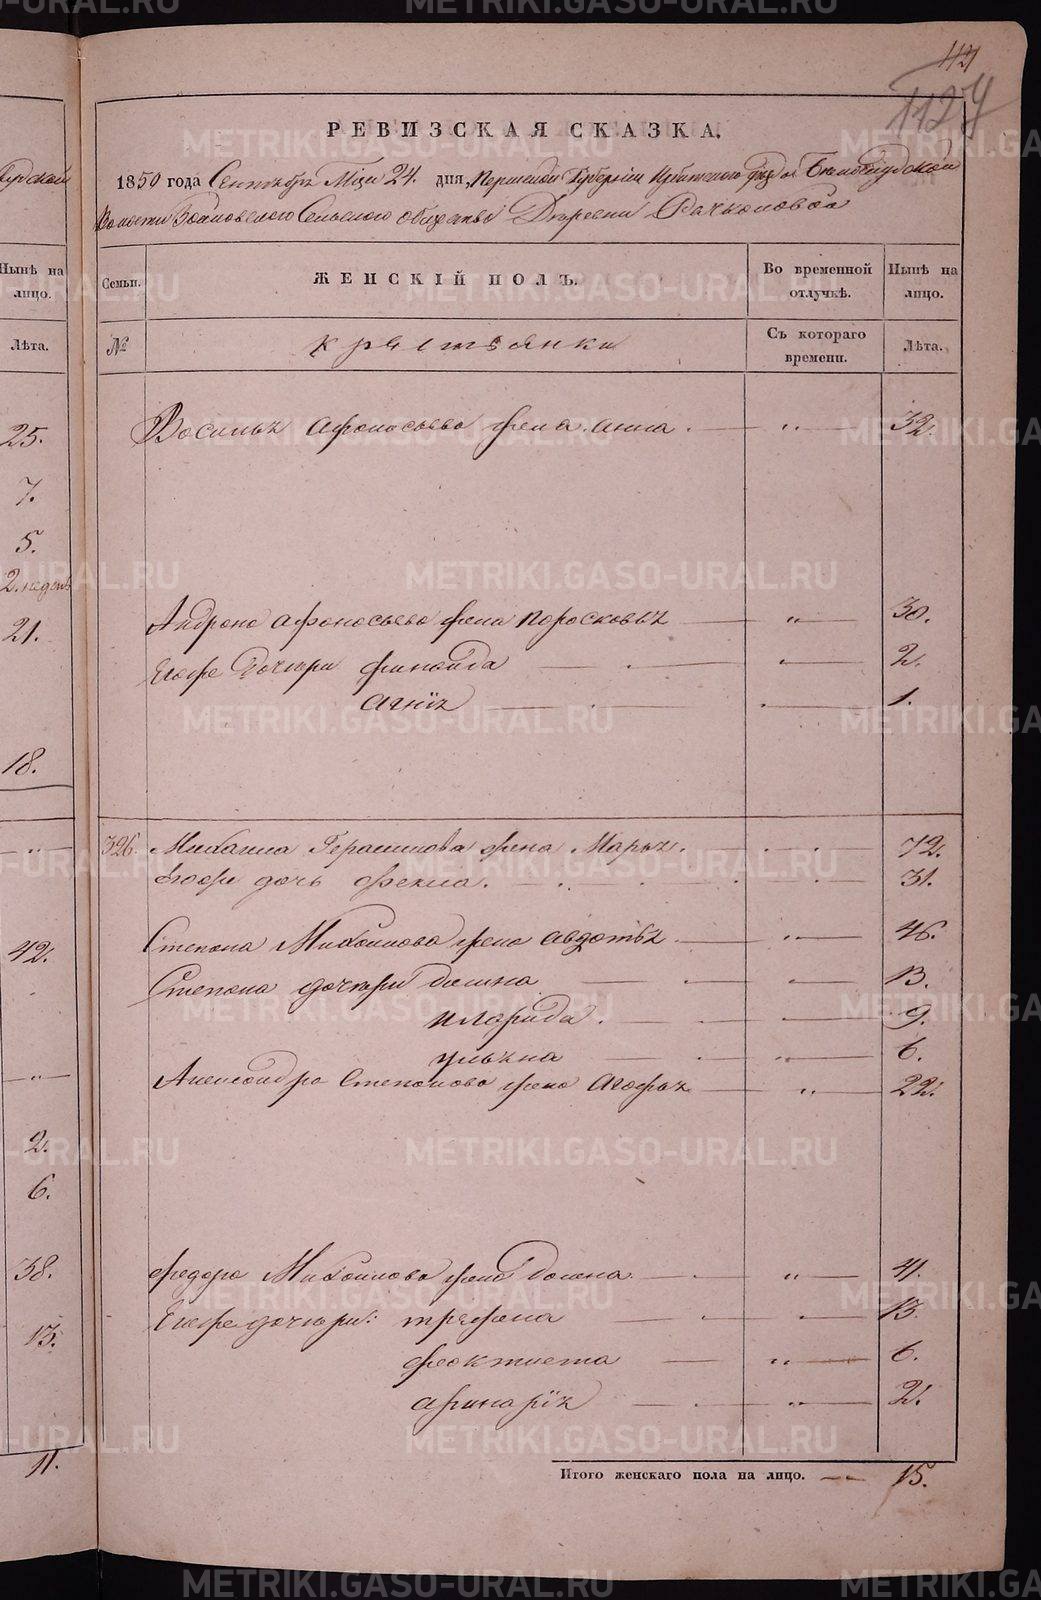 1127
РЕВИЗСКАЯ СКАЗКА.
1850 года Сентября Мца 24. дня, Пермской Губернiи Ирбитского уезда
Волости Сельского общества Деревни Рачкововой
Нынѣ на лицо.
Лѣта.
Семьи. ЖЕНСКIЙ ПОЛЪ. Во временной отлучкѣ. Нынѣ на лицо.
№ крестьянки Съ котораго времени. Лѣта.
25.
7.
5.
2. недель
21.
18.
42.
2.
6.
38.
13.
11.
Василья Афонасьева жена Анна. — „ — 32.
Андрона Афонасьева жена Порасковья — „ — 30.
Егоже дочери — „ — 2.
Агнiя — 1.
326. Михаила Герасимова жена Марья. — 72.
Егоже дочь Фекла. — 31.
Степана Михайлова жена Авдотья — „ — 46.
Степана дочери — 13.
9.
Ульяна — „ — 6.
Александра Степанова жена Агафья — „ — 22.
Федора Михайлова жена — „ — 41.
Егоже дочери: — 13.
Феоктиста — „ — 6.
— „ — 2.
Итого женскаго пола на лицо. — 15.
METRIKI.GASO-URAL.RU